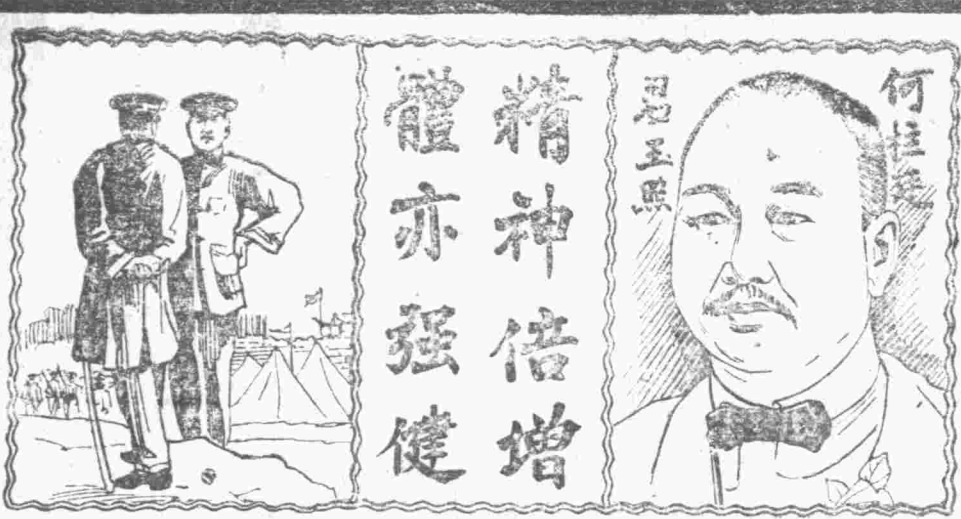 何柱臣
君玉照
精神倍增
體亦强健